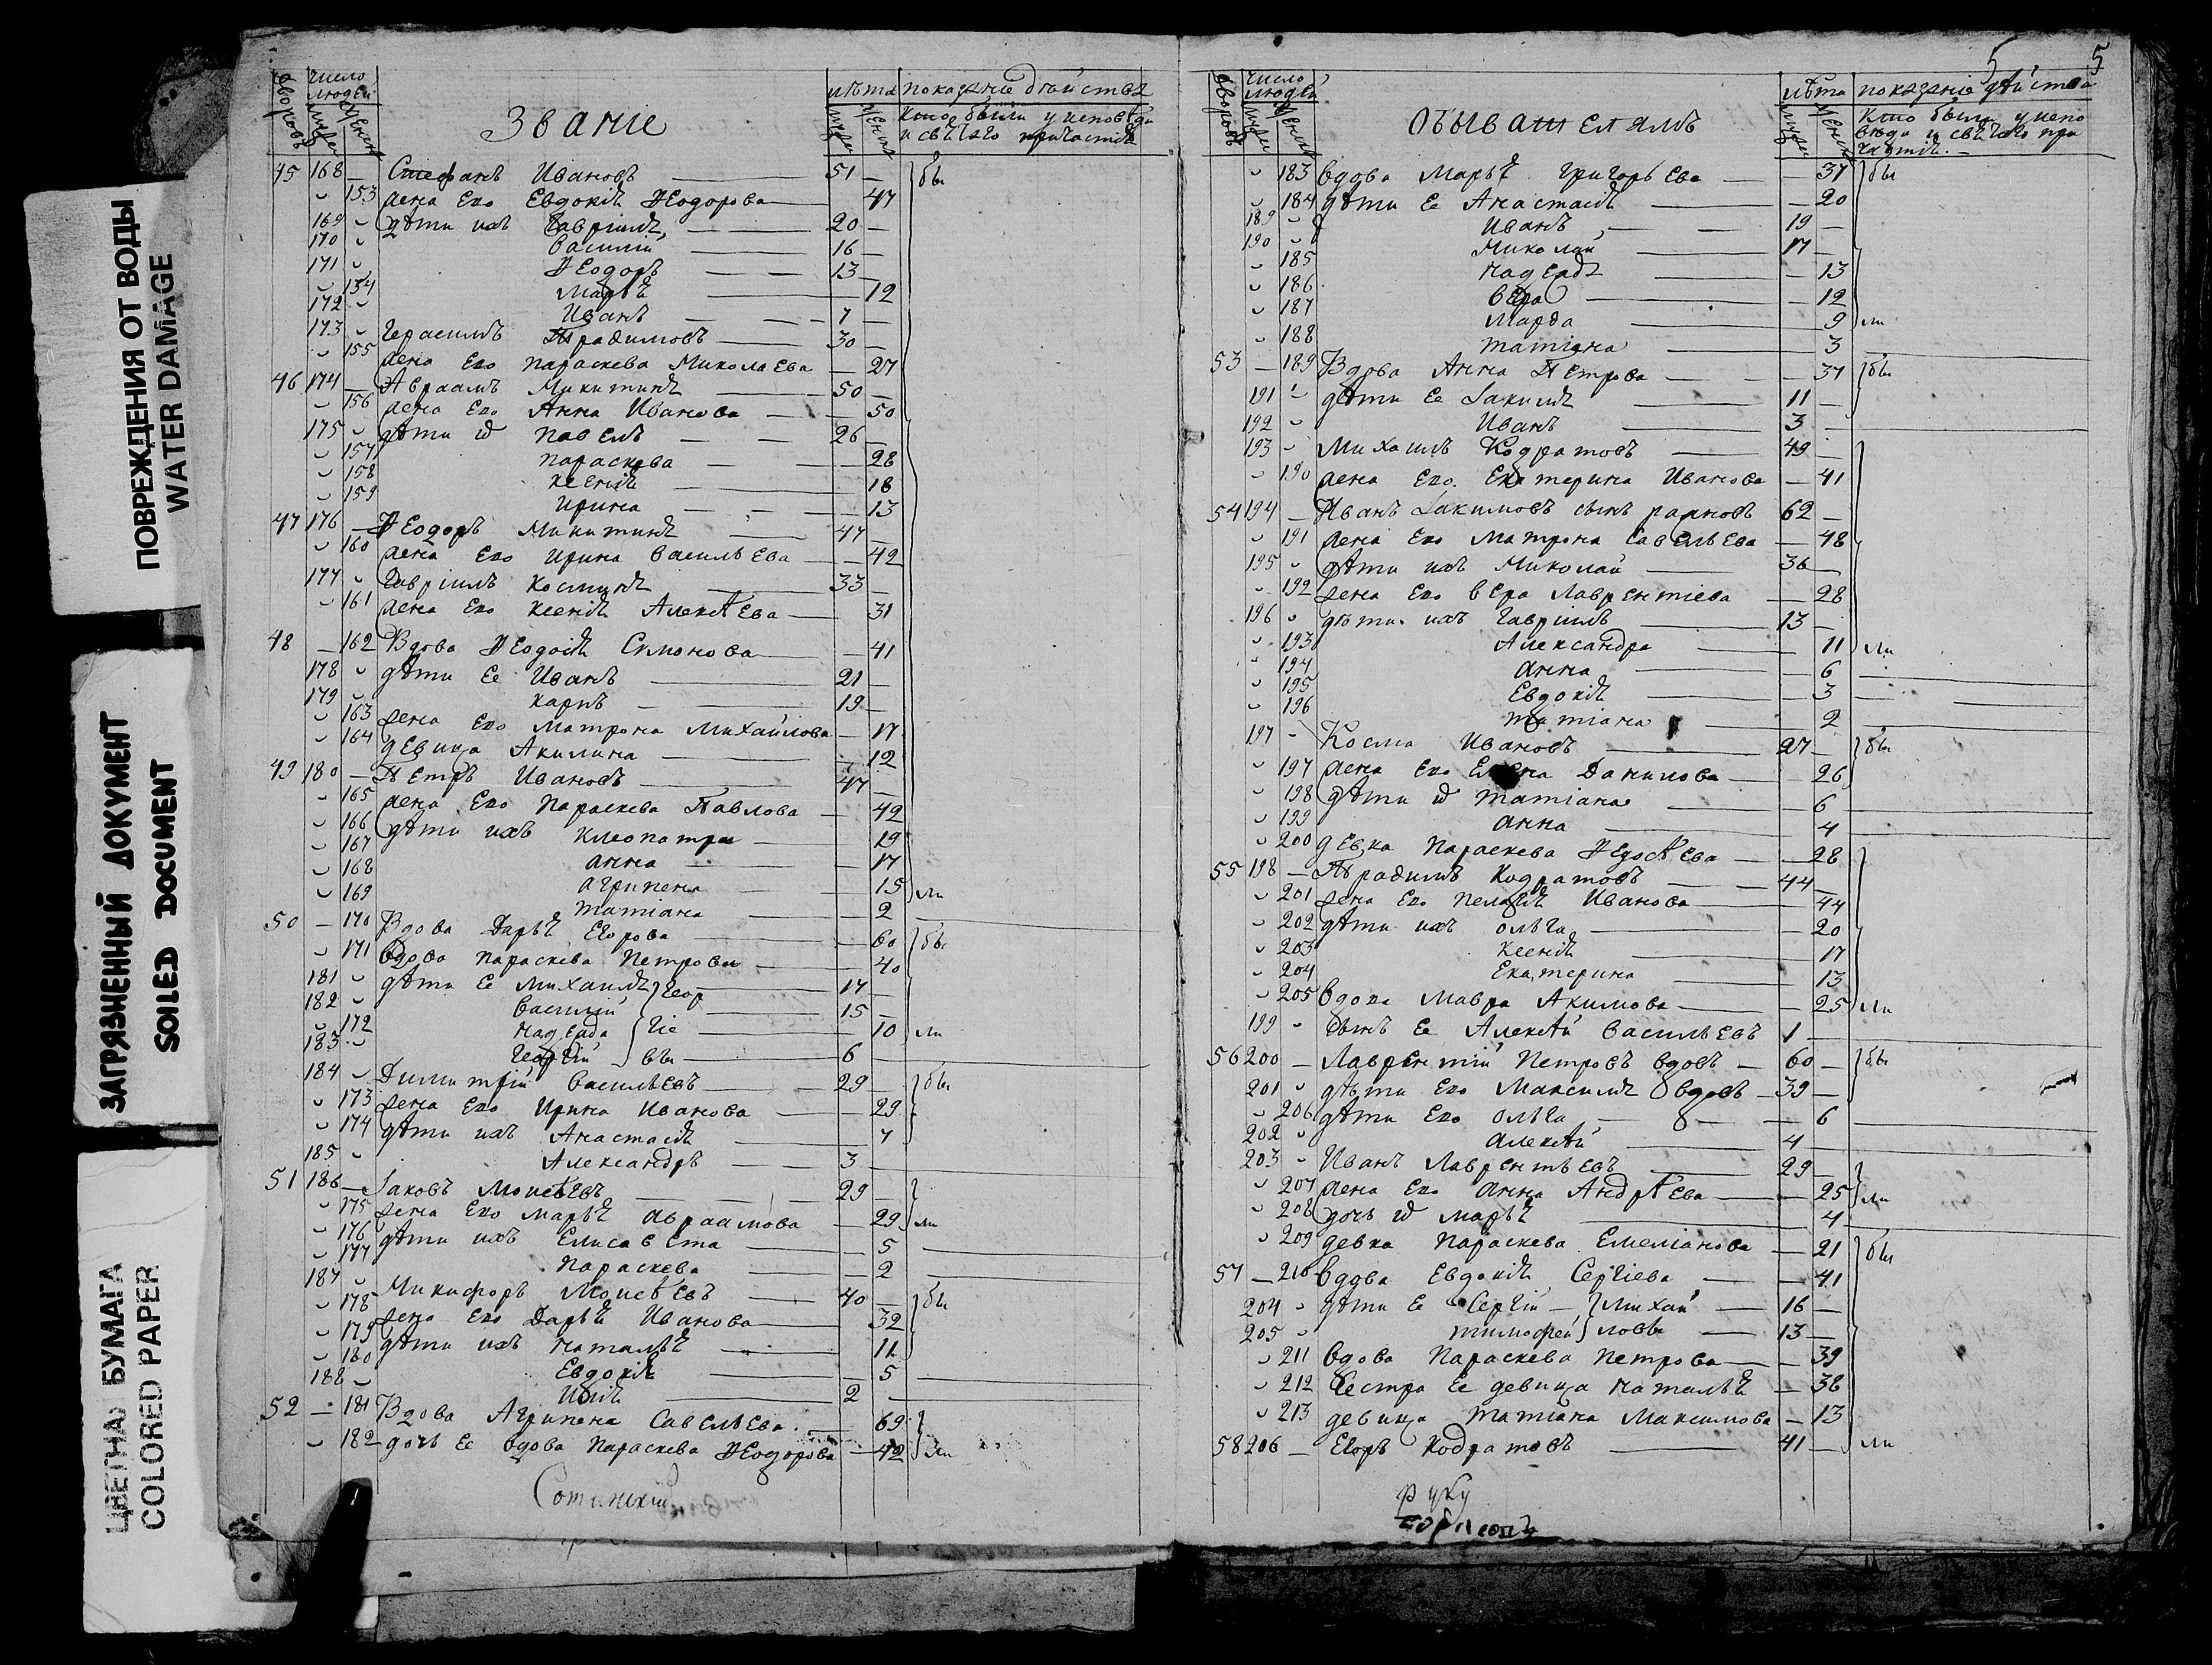 ПОВРЕЖДЕНИЯ ОТ ВОДЫ
WATER DAMAGE
ЗАГРЯЗНЕННЫЙ ДОКУМЕНТ
SOILED DOCUMENT
ЦВЕТНАЯ БУМАГА
COLORED PAPER
дворовъ число людей мужи женска Званіе лѣта мужи женск показаніе дѣиства
Кто были у исповѣди и свѣтаго причастія
45 168 — Стефанъ Ивановъ 51 — бы
153 жена Его Евдокія Ѳеодорова 47
169 дѣти ихъ Гавріилъ 20 —
170 Василій 16 —
171 Ѳеодоръ 13 —
154 Марья 12
172 Иванъ 7 —
173 Герасимъ Традимовъ 30 —
155 жена Его Параскева Миколаева 27
46 174 — Авраамъ Микитинъ 50 —
156 жена Его Анна Иванова 50
175 дѣти Павелъ 26 —
157 Параскева 28
158 Ксенія 18
159 Ирина 13
47 176 — Ѳеодоръ Микитинъ 47 —
160 жена Его Ирина Васильева 42
177 Гавріилъ Косминъ 33 —
161 жена Его Ксенія Алексѣева 31
48 — 162 Вдова Ѳеодосія Симонова 41
178 дѣти Ее Иванъ 21 —
179 Карпъ 19 —
163 жена Его Матрона Михайлова 17
164 девица Акилина 12
49 180 — Петръ Ивановъ 47 —
165 жена Его Параскева Павлова 42
166 дѣти ихъ Клеопатра 19
167 Анна 17
168 Агрипена 15 ли
169 Татіана 2
50 — 170 Вдова Дарья Егорова 60 бы
171 Вдова Параскева Петрова 40
181 дѣти Ее Михаилъ Геор 17 —
182 Василій 15 —
172 Надежда гіе 10 ли
183 Георгій вы 6 —
184 Димитрій Васильевъ 29 — бы
173 жена Его Ирина Иванова 29
174 дѣти ихъ Анастасія 7
185 Александръ 3 —
51 186 — Іаковъ Моисѣевъ 29 —
175 жена Его Марья Авраамова 29 ли
176 дѣти ихъ Елисавета 5
177 Параскева 2
187 Микифоръ Моисѣевъ 40 — бы
178 жена Его Дарья Иванова 32
179 дѣти ихъ Наталья 11
180 Евдокія 5
188 Илія 2 —
52 — 181 Вдова Агрипена Савельева 69
182 дочь Ее вдова Параскева Ѳеодорова 42 ли
5 5
дворовъ число людей мужи женск обывателямъ лѣта мужи женск показаніе дѣиства
Кто были у исповѣди и свѣтаго причастія.
183 Вдова Марья Григорьева 37 бы
184 дѣти Ее Анастасія 20
189 Иванъ 19 —
190 Миколай 17 —
185 Надежда 13
186 Вера 12
187 Марфа 9 ли
188 Татіана 3
53 — 189 Вдова Анна Петрова 37 бы
191 дѣти Ее Іакимъ 11 —
192 Иванъ 3 —
193 Михаилъ Кодратовъ 49 —
190 жена Его Екатерина Иванова 41
54 194 — Иванъ Іакимовъ сынъ 62 —
191 жена Его Матрона Савельева 48
195 дѣти ихъ Миколай 36 —
192 жена Его Вера Лаврентіева 28
196 дѣти ихъ Гавріилъ 13 —
193 Александра 11 ли
194 Анна 6
195 Евдокія 3
196 Татіана 2
197 Косма Ивановъ 27 — бы
197 жена Его Елена Данилова 26
198 дѣти Татіана 6
199 Анна 4
200 девка Параскева Ѳедосѣева 28
55 198 — Традимъ Кодратовъ 44 —
201 жена Его Пелагія Иванова 44
202 дѣти ихъ Ольга 20
203 Ксенія 17
204 Екатерина 13
205 Вдова Мавра Акимова 25 ли
199 сынъ Ее Алексѣй Васильевъ 1
56 200 — Лаврентій Петровъ вдовъ 60 — бы
201 дѣти Его Максимъ вдовъ 39 —
206 дѣти Его Ольга 6
202 Алексѣй 4 —
203 Иванъ Лаврентьевъ 29 —
207 жена Его Анна Андрѣева 25 ли
208 дочь Марья 4
209 девка Параскева Емеліанова 21 бы
57 — 210 Вдова Евдокія Сергіева 41
204 дѣти Ее Сергій Михаи 16 —
205 Тимофей ловы 13 —
211 Вдова Параскева Петрова 39
212 Сестра Ее девица Наталья 38
213 девица Татіана Максимова 13
58 206 — Егоръ Кодратовъ 41 — ли
руку